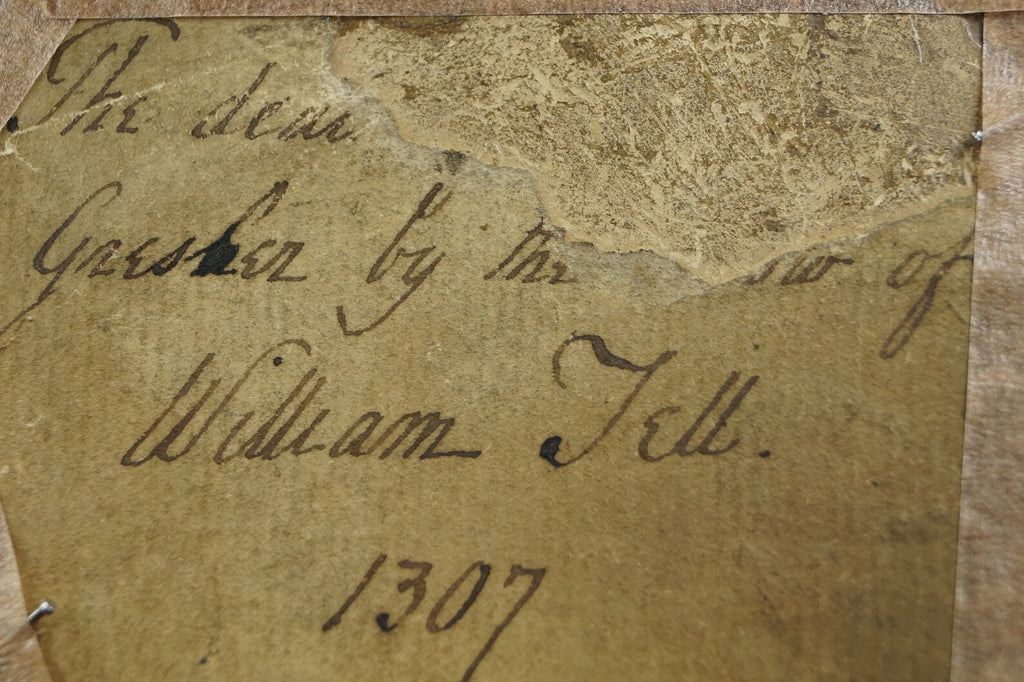 The dea
Gresler by the ow of
William Tell.
1307